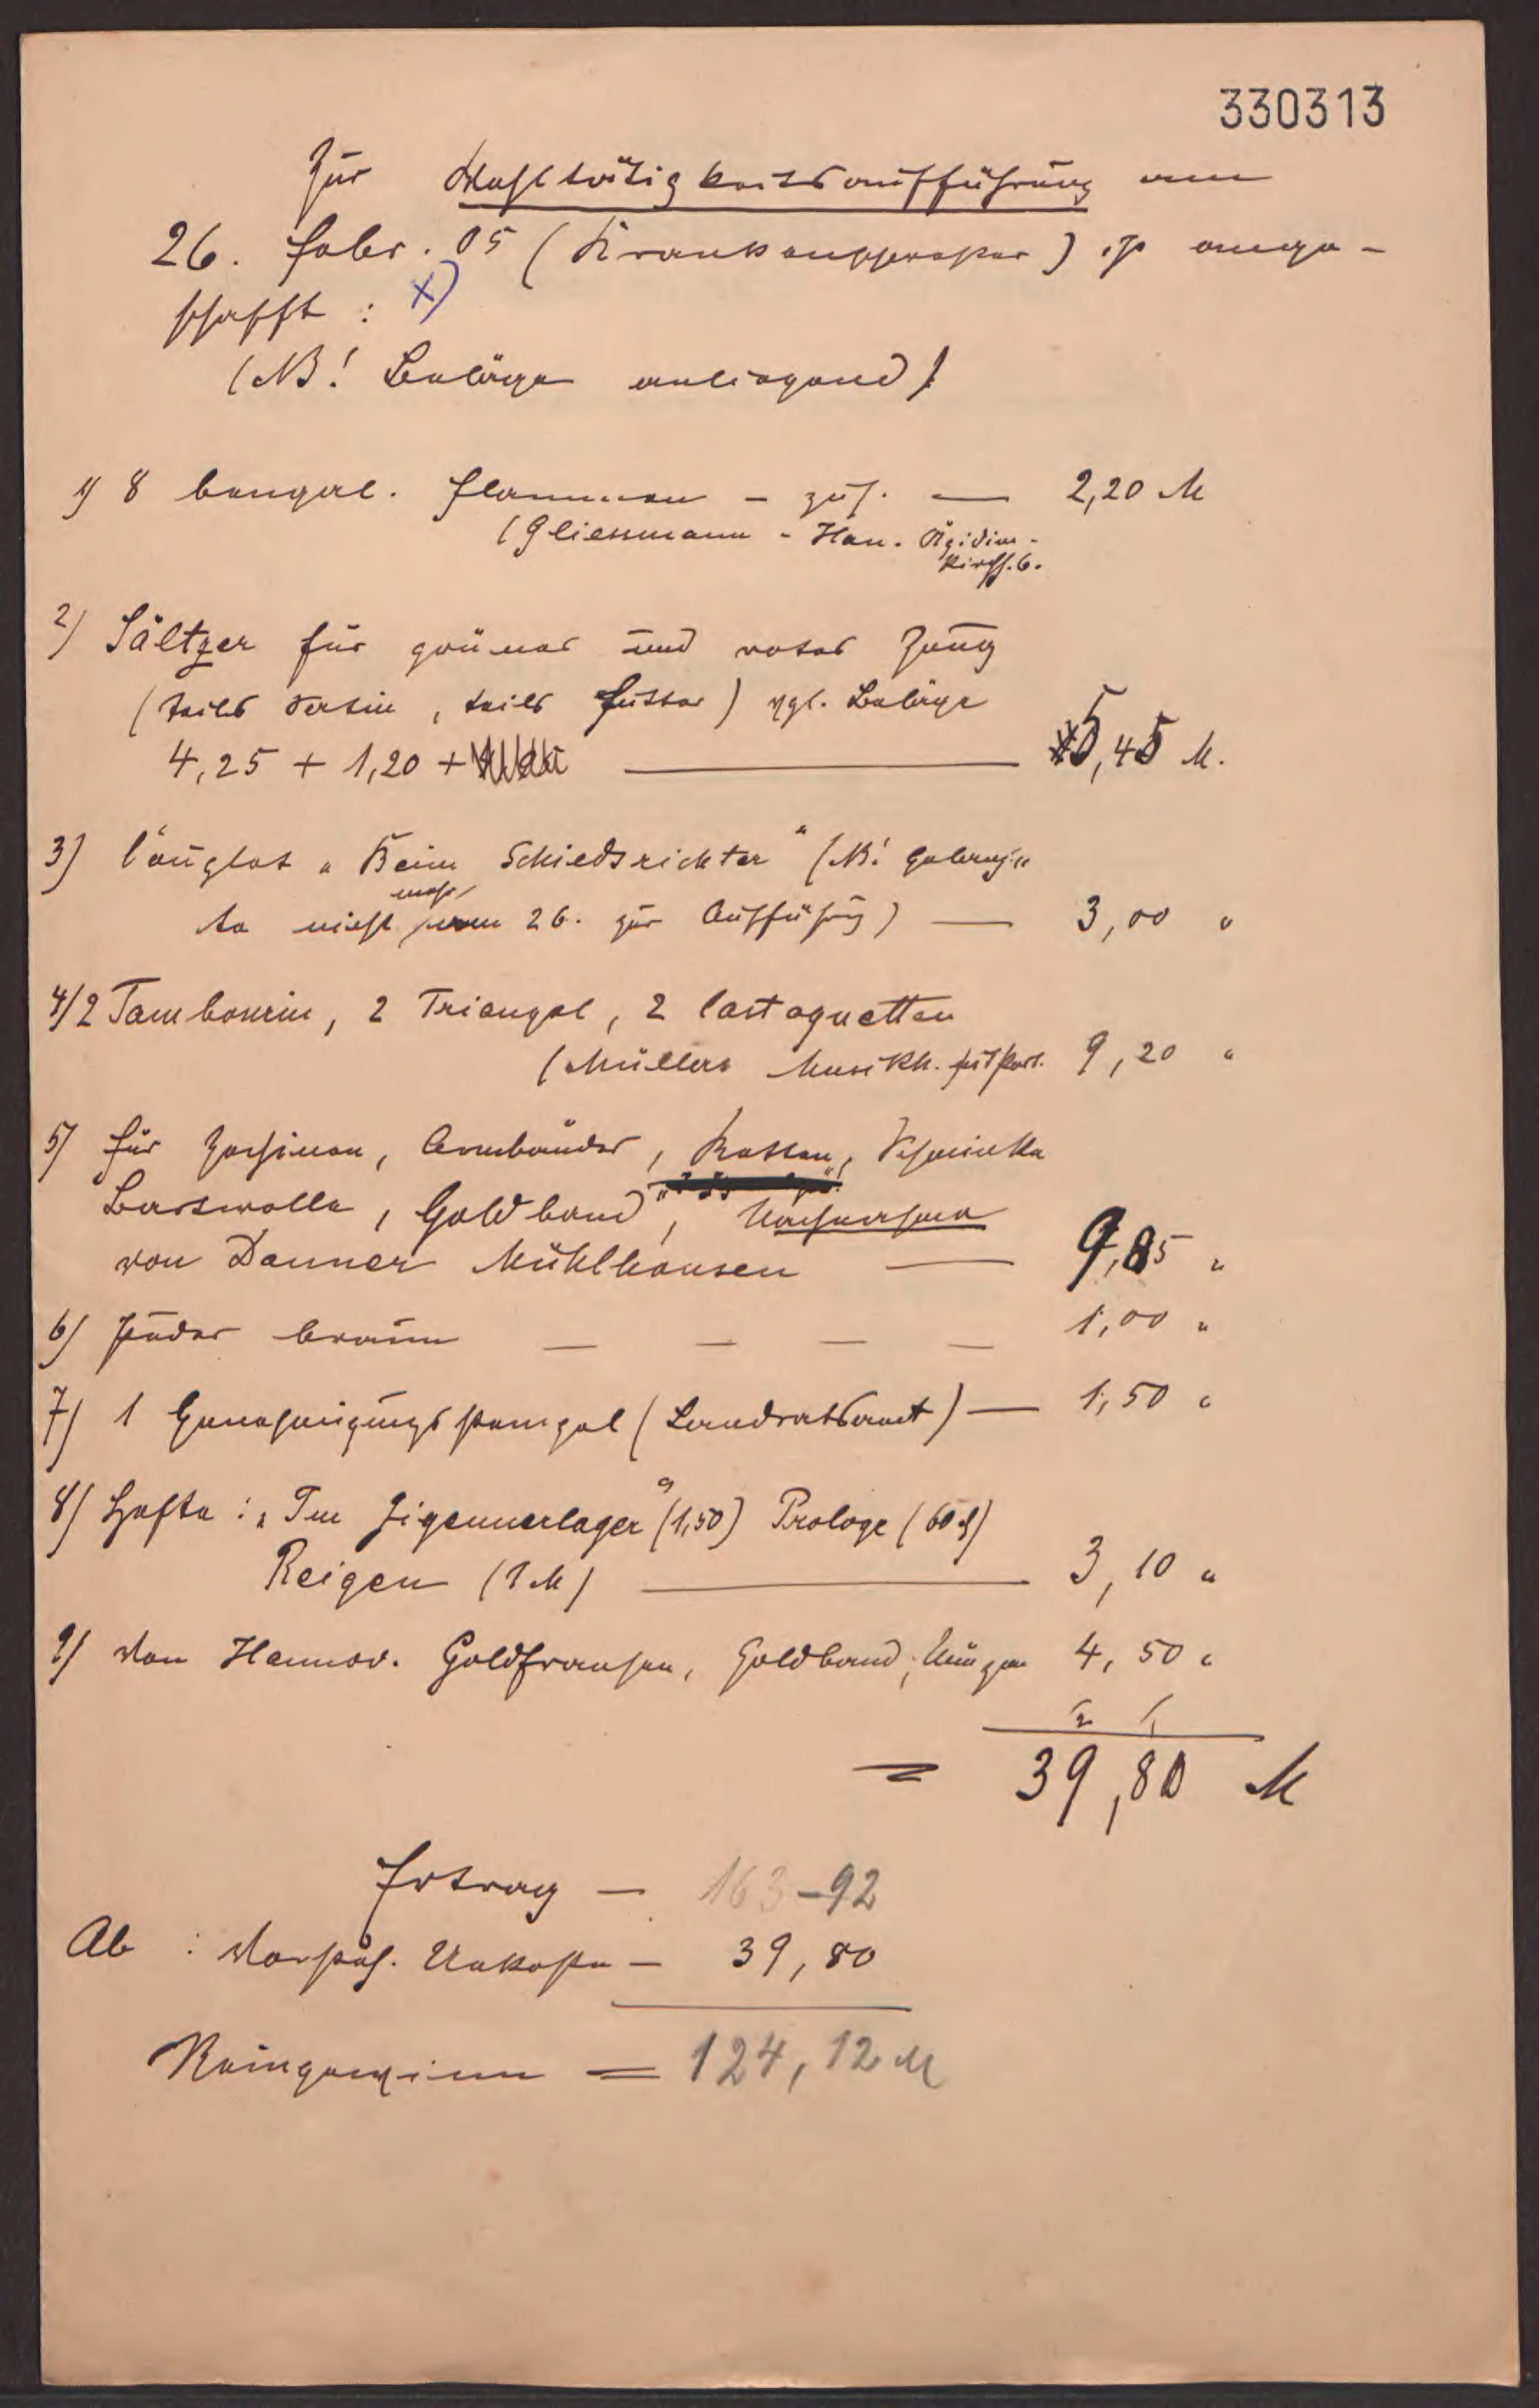 330313
Zur Wohltätigkeitsaufführung am
26. Febr. 05 (Krankenschwester) ist ange-
schafft : x)
(NB! Beläge anliegend)
1) 8 bengal. Flammen – zus. — 2,20 M
(Gliessmann - Han. Ägidien-
kirchh. 6.
2) Sältzer für grünes und rotes Zeug
(teils Satin, teils Futter) vgl. Beläge
4,25 + 1,20 + — 5,45 M.
3) Couplet „Beim Schiedsrichter“ (NB! gelangte
nicht mehr am 26. zur Aufführung) — 3,00 "
4) 2 Tambourin, 2 Triangel, 2 Castagnetten
(Müllers Musikh. 9,20 "
5) für Zechinen, Armbänder, Ketten, Schminke
Bartwolle, Goldband, Nachnahme
von Danner Mühlhausen — 9,85 "
6) Puder braun — — — — 1,00 "
7) 1 Genehmigungsstempel (Landratsamt) — 1,50 "
8) Hefte : „Im Zigeunerlager“ (1,50) Prologe (60 ₰)
Reigen (1 M) — 3,10 "
9) Von Hannov. Goldfransen, Goldband, Münzen 4,50 "
2 1
= 39,80 M
Ertrag — 163-92
Ab : Vorsteh. Unkosten — 39,80
Reingewinn = 124,12 M